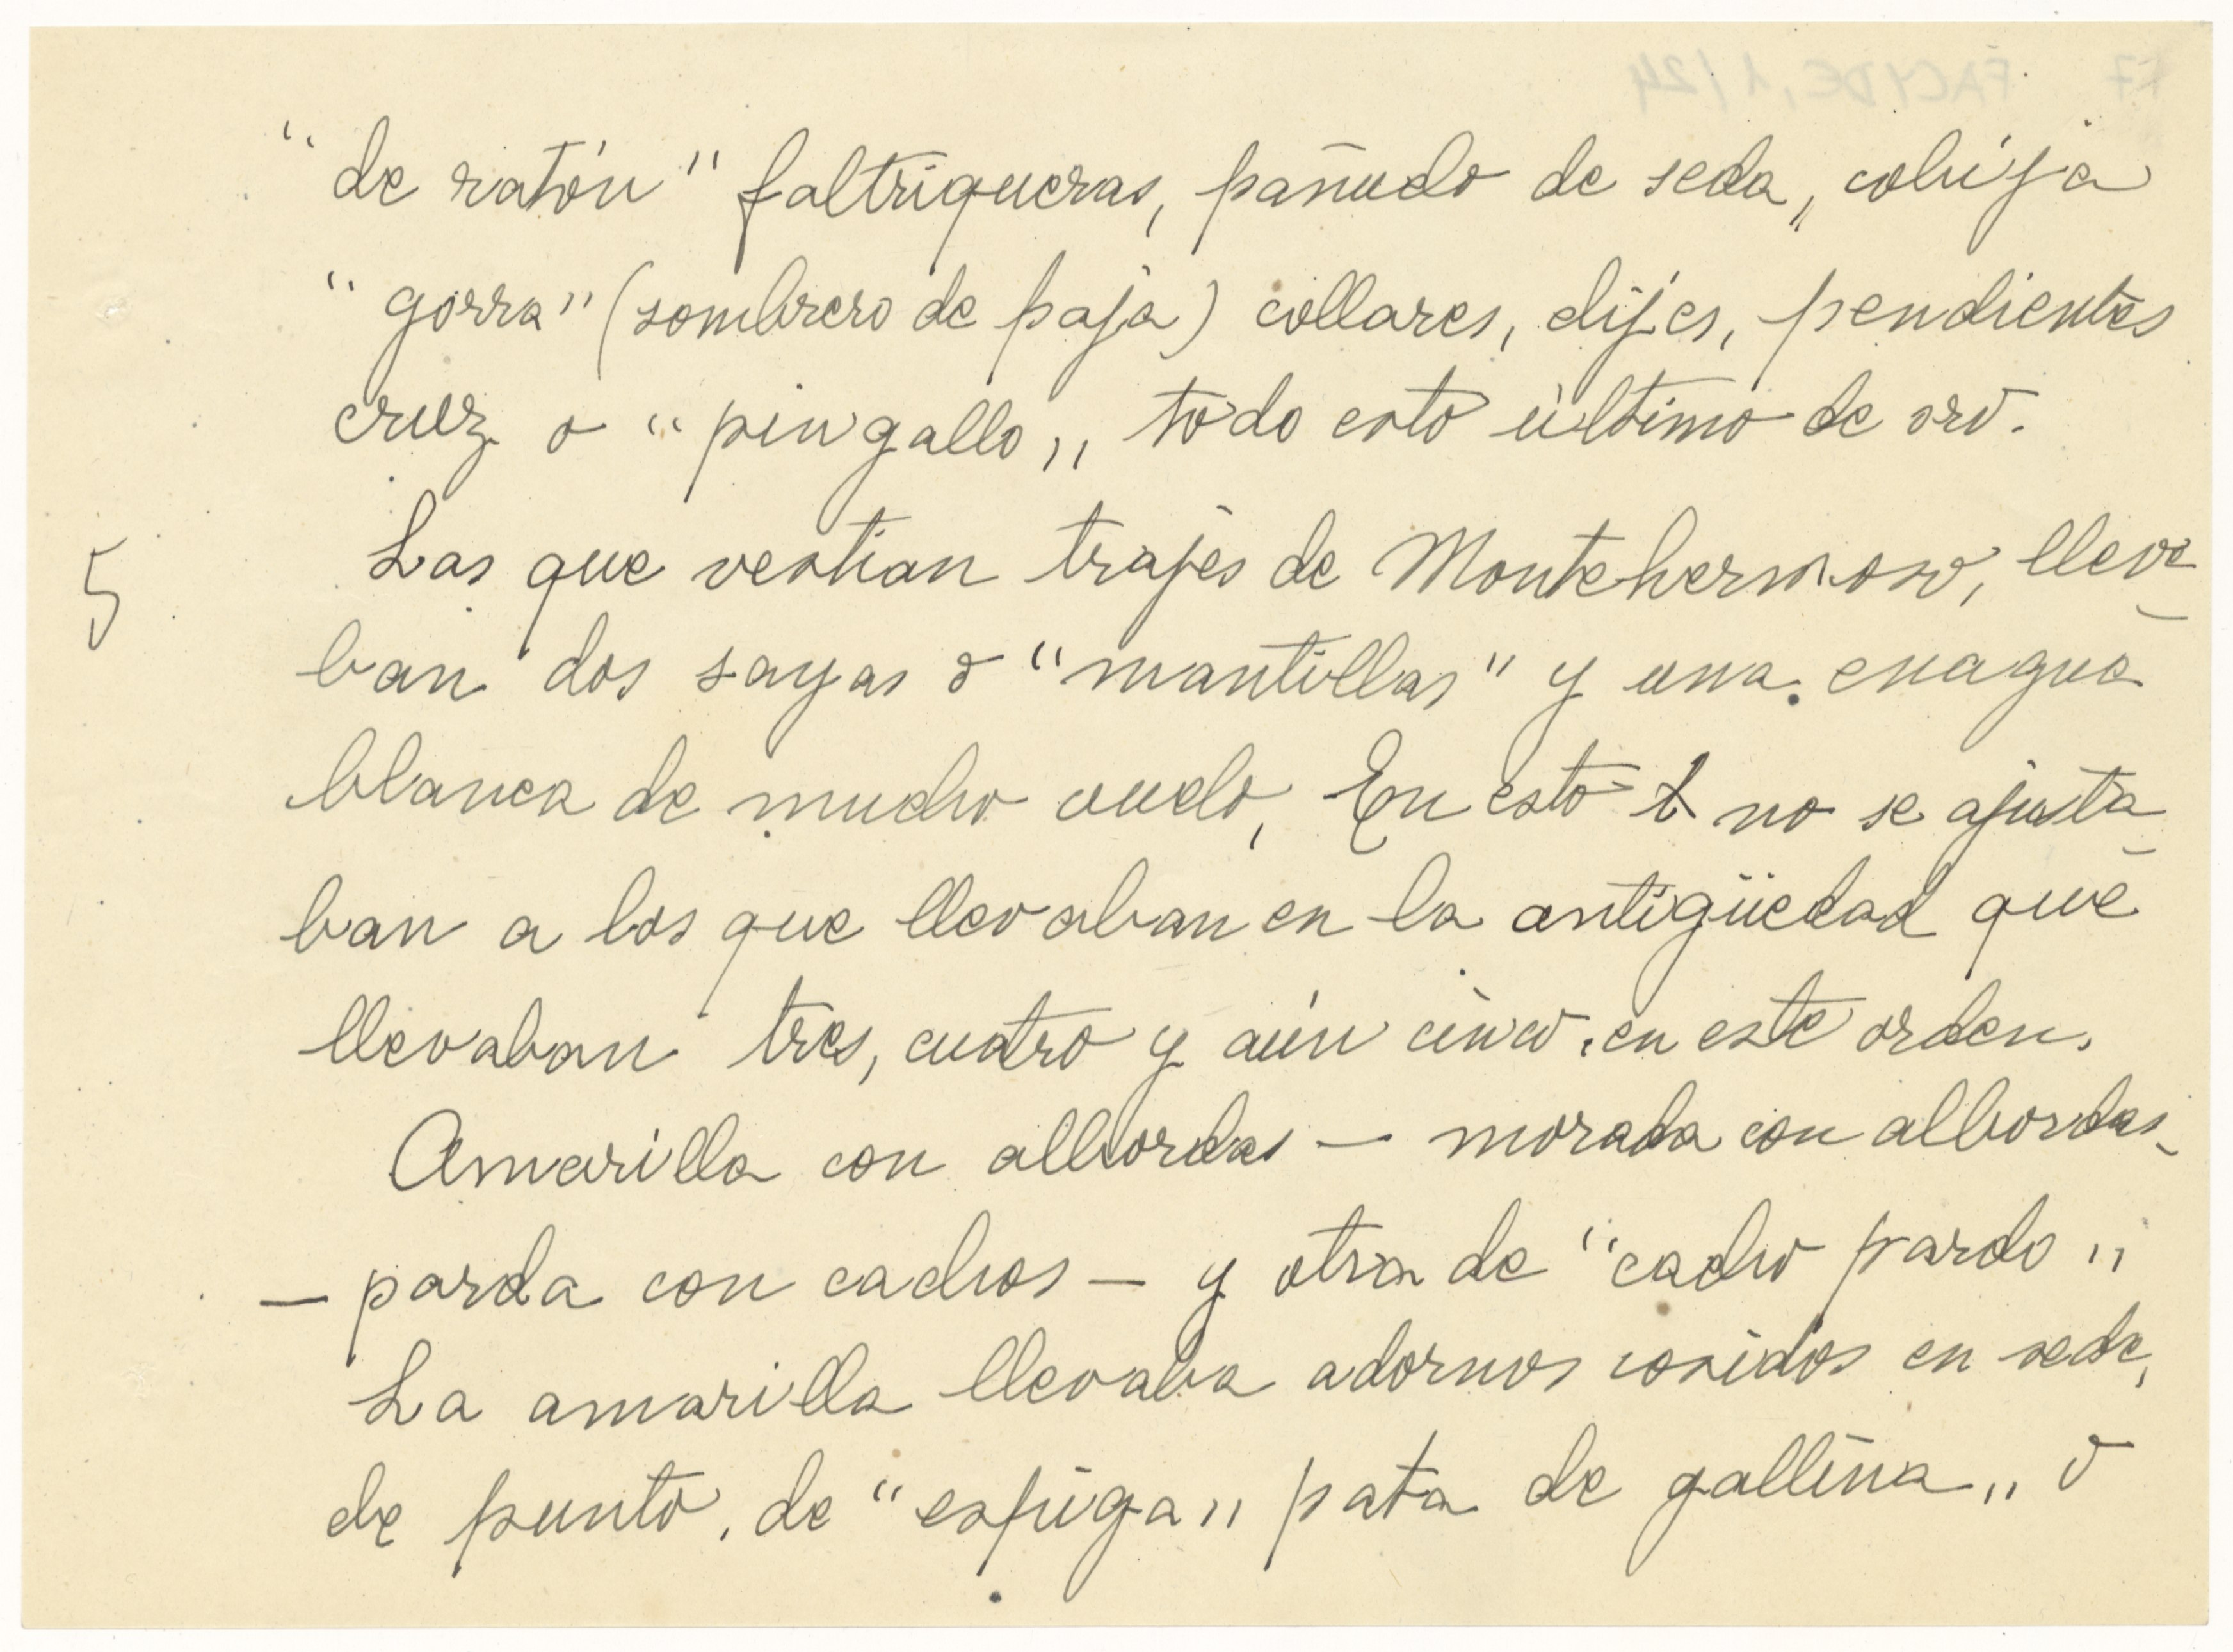 "de ratón" faltriqueras, pañuelo de seda, cobija
"gorra" (sombrero de paja) collares, dijes, pendientes
cruz o "pingallo,, todo esto último de oro.
5
Las que vestian trajes de Montehermoso, lleva-
ban dos sayas o "mantillas" y una enagua
blanca de mucho vuelo, En esto no se ajusta-
ban a los que llevaban en la antigüedad que
llevaban tres, cuatro y aún cinco. en este orden.
Amarilla con albordas — morada con albordas-
— parda con cachos — y otra de "cacho pardo,,
La amarilla llevaba adornos cosidos en seda,
de punto, de "espiga,, pata de gallina,, o